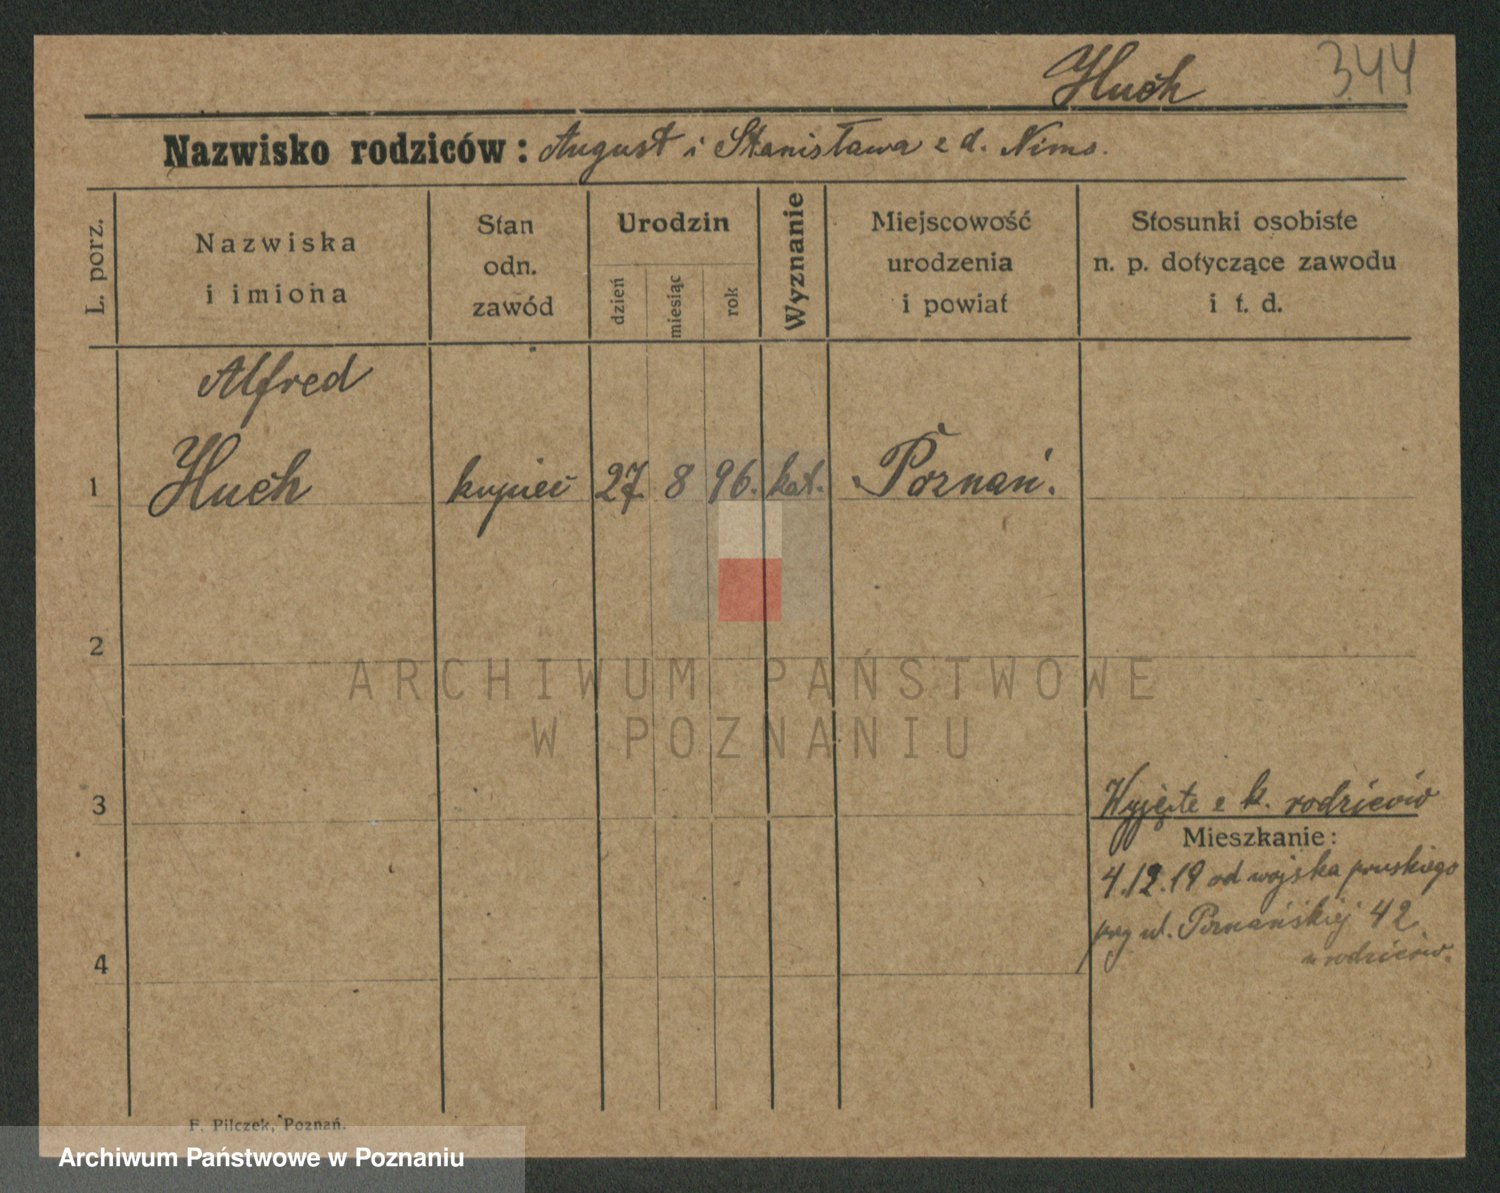 Huch 344
Nazwisko rodziców: August i Stanisława z d. Nims.
L. porz.
Nazwiska
i imiona
Stan
odn.
zawód
Urodzin
dzień
miesiąc
rok
Wyznanie
Miejscowość
urodzenia
i powiat
Stosunki osobiste
n. p. dotyczące zawodu
i t. d.
Alfred
1 Huch kupiec 27. 8 96. kat. Poznań.
2
ARCHIWUM PAŃSTWOWE
W POZNANIU
3 Wyjęte z k. rodziców
Mieszkanie:
4.12.19 od wojska pruskiego
przy ul. Poznańskiej 42
u rodziców.
4
F. Pilczek, Poznań.
Archiwum Państwowe w Poznaniu